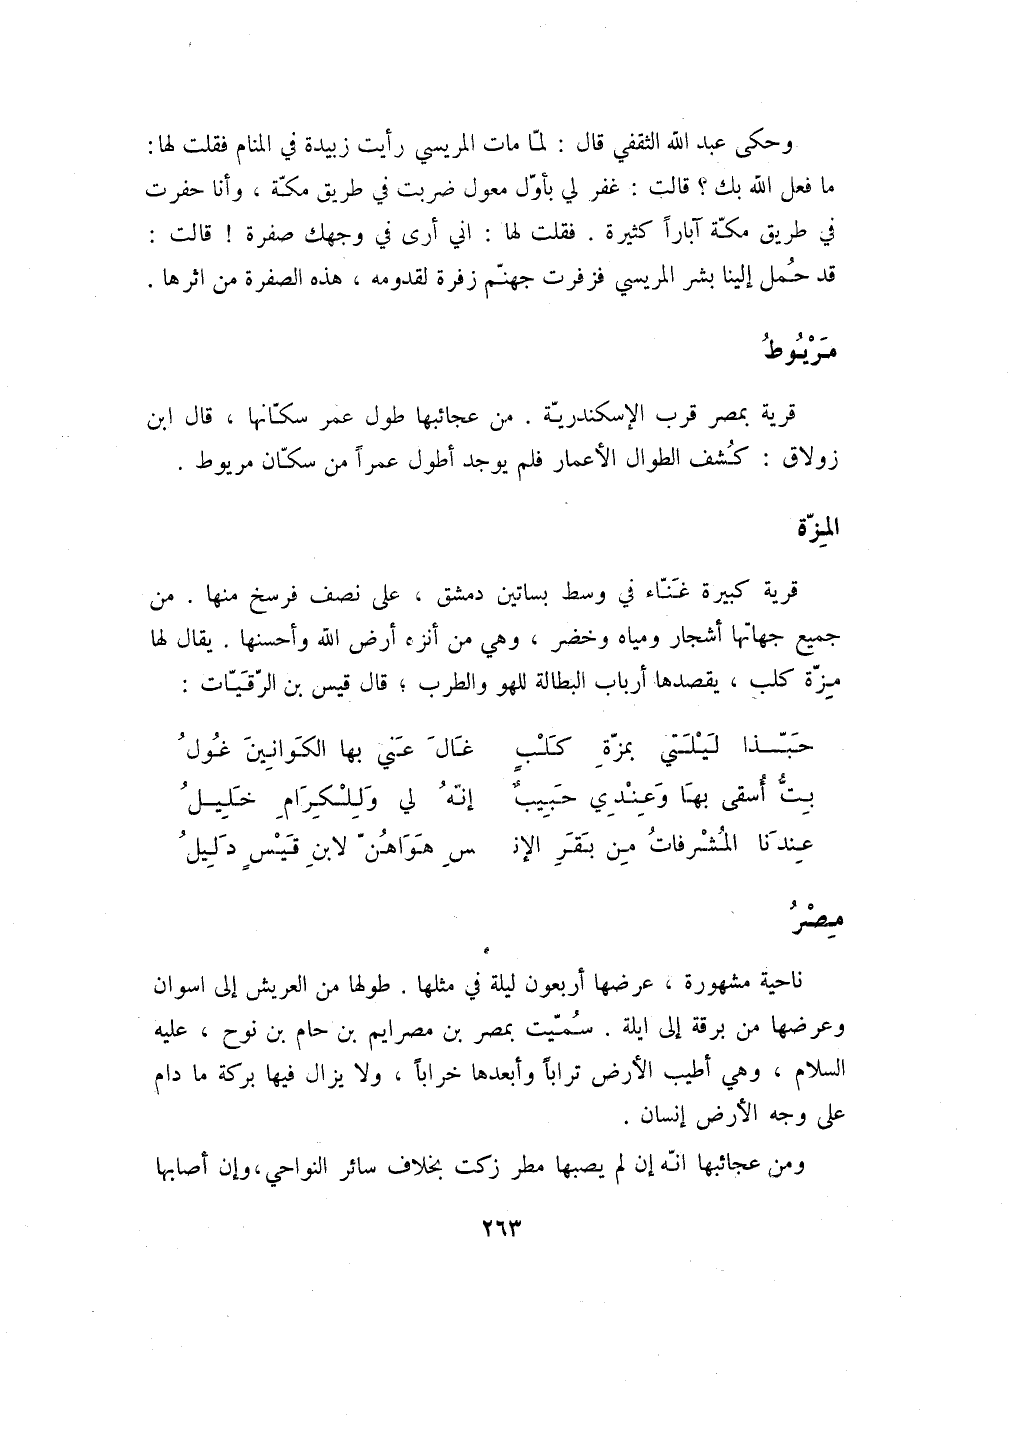 وحكى عبد الله الثقفي قال : لمّا مات المريسي رأيت زبيدة في المنام فقلت لها :
ما فعل الله بك ؟ قالت : غفر لي بأوّل معول ضربت في طريق مكّة ، وأنا حفرت
في طريق مكّة آباراً كثيرة . فقلت لها : اني أرى في وجهك صفرة ! قالت :
قد حُمل إلينا بشر المريسي فزفرت جهنّم زفرة لقدومه ، هذه الصفرة من اثرها .
مَرْيُوطُ
قرية بمصر قرب الإسكندريّة . من عجائبها طول عمر سكّانها ، قال ابن
زولاق : كُشف الطوال الأعمار فلم يوجد أطول عمراً من سكّان مريوط .
المِزّة
قرية كبيرة غَنّاء في وسط بساتين دمشق ، على نصف فرسخ منها . من
جميع جهاتها أشجار ومياه وخضر ، وهي من أنزه أرض الله وأحسنها . يقال لها
مِزّة كلب ، يقصدها أرباب البطالة للهو والطرب ؛ قال قيس بن الرّقَيّات :
حَبّذا لَيْلَتي بمزّةِ كَلْبٍ غَالَ عَني بها الكَوانِينَ غُولُ
بِتُّ أُسقى بهَا وَعِنْدِي حَبِيبٌ إنّهُ لي وَلِلْكِرَامِ خَلِيلُ
عِندَنا المُشْرفاتُ مِن بَقَرِ الإنـ سِ هَوَاهُنّ لابنِ قَيْسٍ دَلِيلُ
مِصْرُ
ناحية مشهورة ، عرضها أربعون ليلة في مثلها . طولها من العريش إلى اسوان
وعرضها من برقة إلى ايلة . سُمّيت بمصر بن مصرايم بن حام بن نوح ، عليه
السلام ، وهي أطيب الأرض تراباً وأبعدها خراباً ، ولا يزال فيها بركة ما دام
على وجه الأرض إنسان .
ومن عجائبها انّه إن لم يصبها مطر زكت بخلاف سائر النواحي ، وإن أصابها
٢٦٣